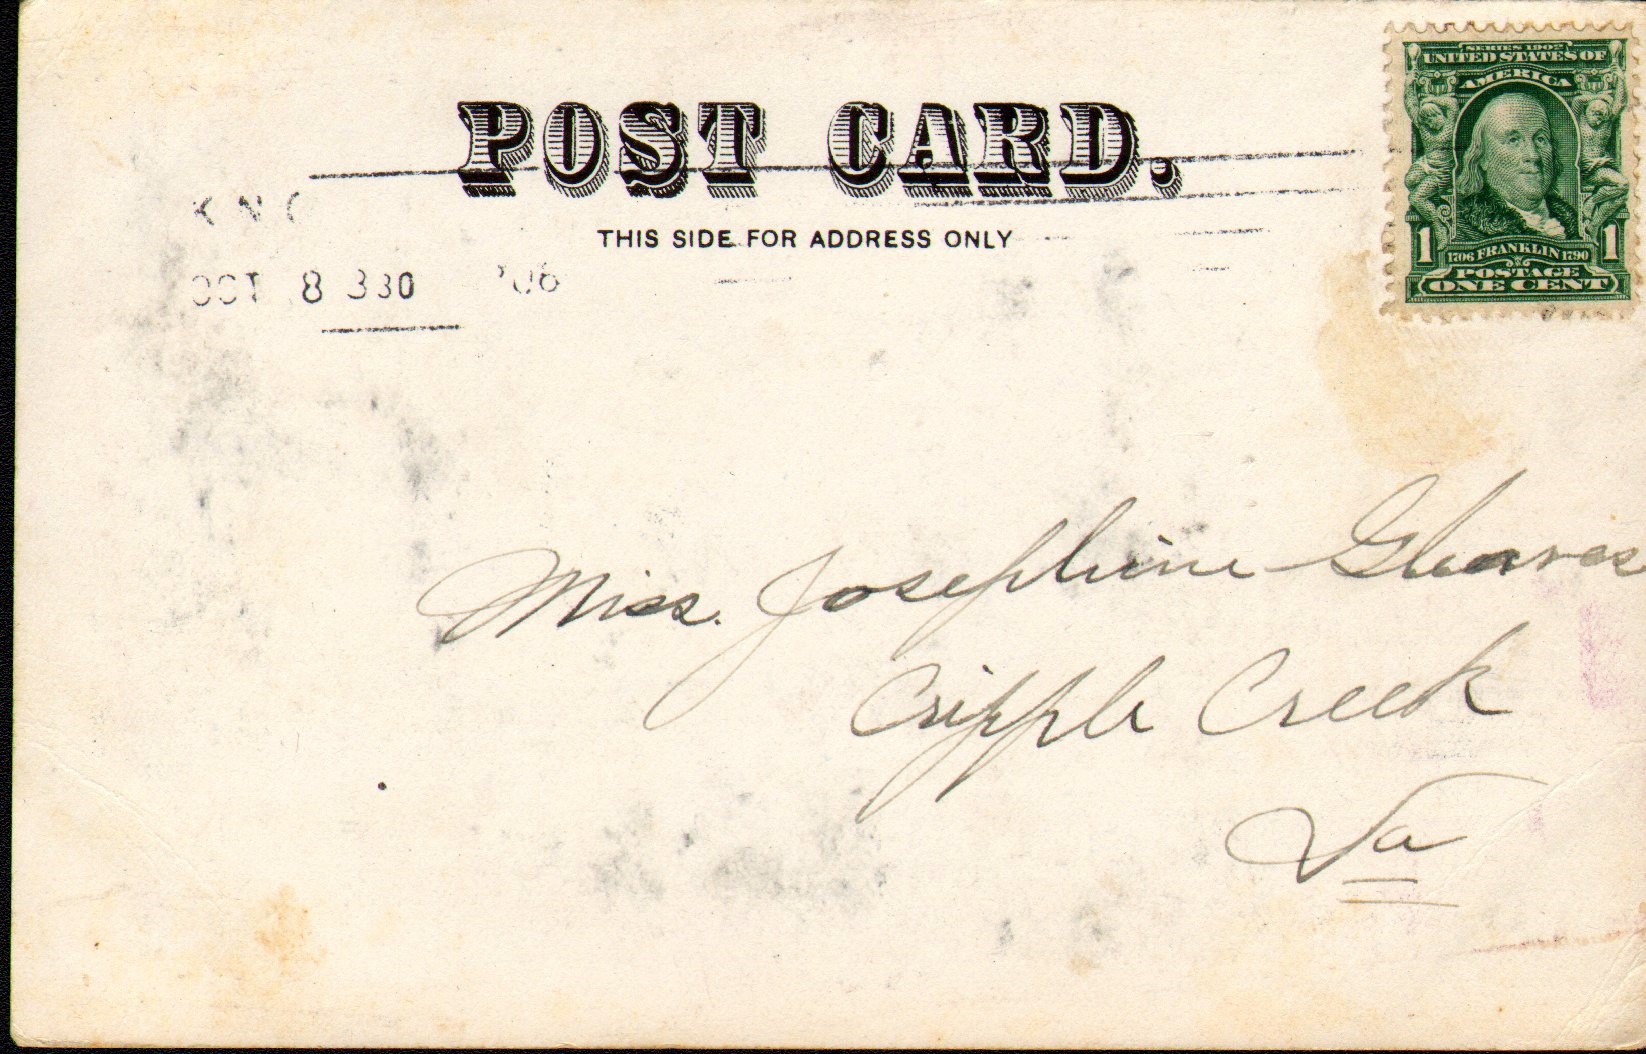 SERIES 1902
UNITED STATES OF
AMERICA
POST CARD.
THIS SIDE FOR ADDRESS ONLY
OCT 8 330 '06
1 1706 FRANKLIN 1790 1
POSTAGE
ONE CENT
Miss. Josephine Gleaves
Cripple Creek
Va